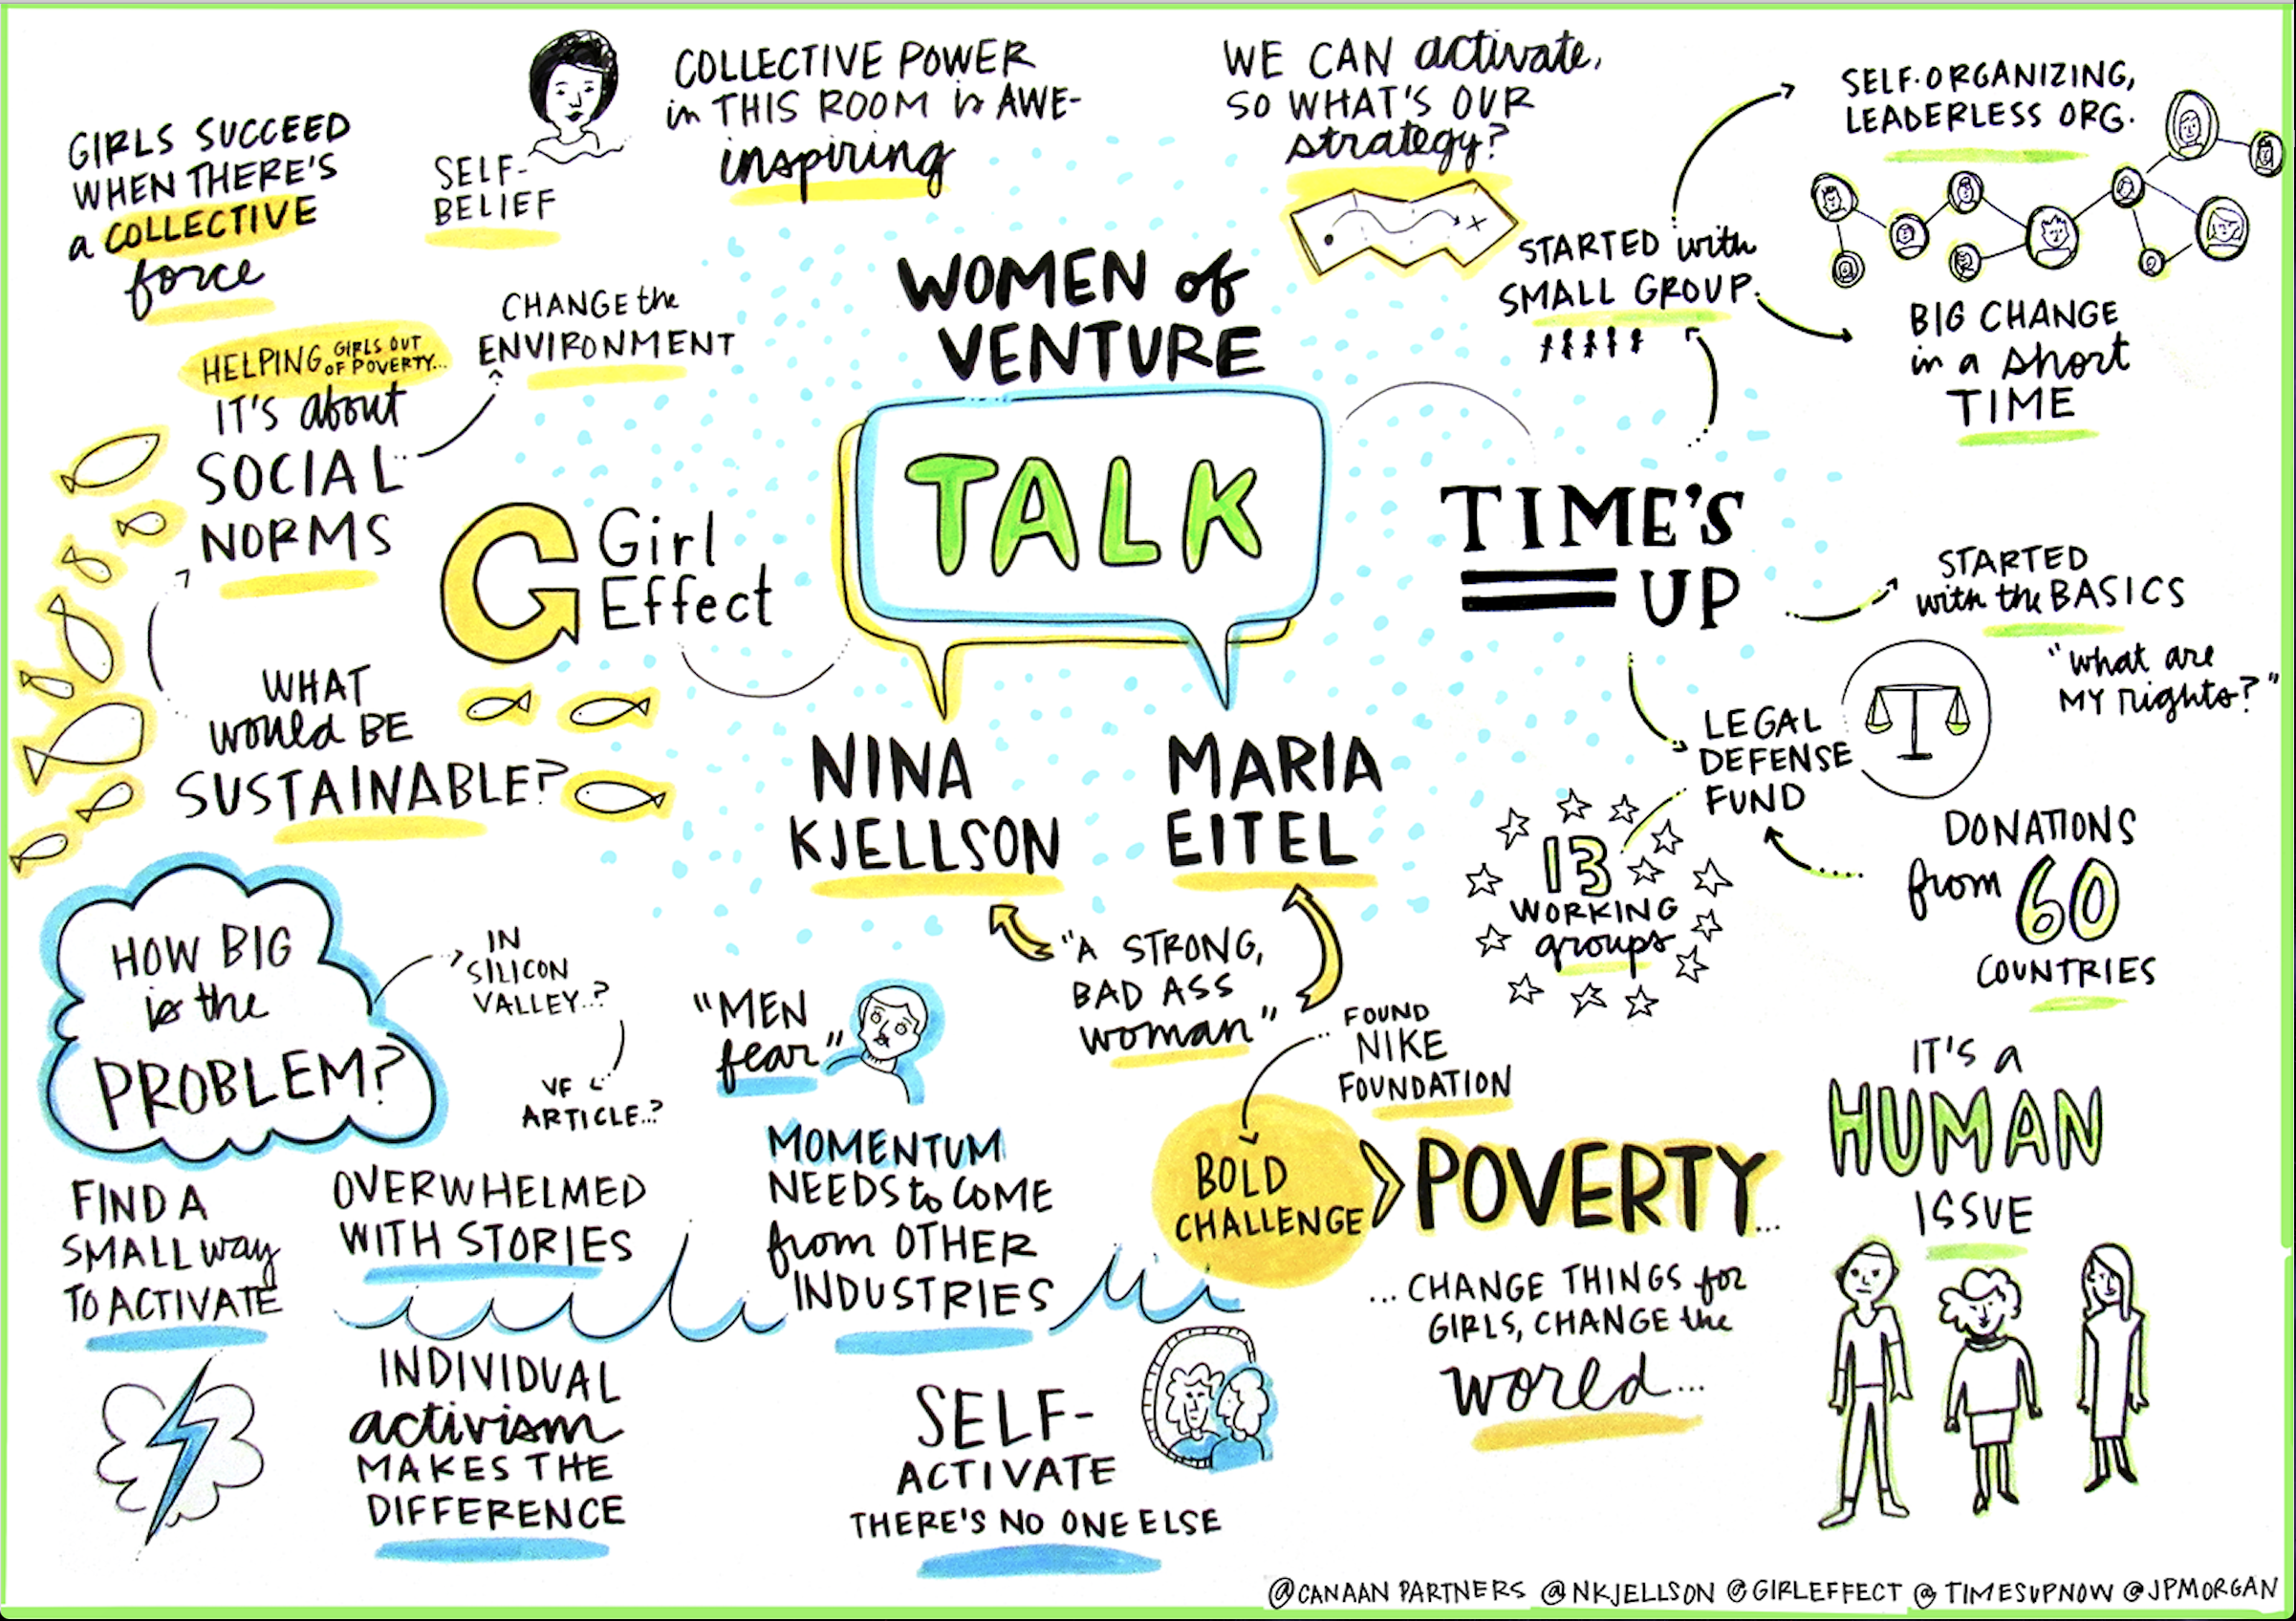 GIRLS SUCCEED
WHEN THERE'S
a COLLECTIVE
force
SELF-
BELIEF
COLLECTIVE POWER
in THIS ROOM is AWE-
inspiring
WE CAN activate,
SO WHAT'S OUR
strategy?
SELF-ORGANIZING,
LEADERLESS ORG.
STARTED with
SMALL GROUP.
BIG CHANGE
in a short
TIME
HELPING GIRLS OUT
OF POVERTY...
IT'S about
SOCIAL
NORMS
CHANGE the
ENVIRONMENT
WOMEN of
VENTURE
TALK
G Girl
Effect
TIME'S
UP
STARTED
with the BASICS
"what are
MY rights?"
WHAT
would BE
SUSTAINABLE?
NINA
KJELLSON
MARIA
EITEL
LEGAL
DEFENSE
FUND
13
WORKING
groups
DONATIONS
from 60
COUNTRIES
HOW BIG
is the
PROBLEM?
IN
SILICON
VALLEY..?
VF
ARTICLE..?
"MEN
fear"
"A STRONG,
BAD ASS
woman"
FOUND
NIKE
FOUNDATION
BOLD
CHALLENGE
POVERTY...
...CHANGE THINGS for
GIRLS, CHANGE the
world...
IT'S a
HUMAN
ISSUE
FIND A
SMALL way
TO ACTIVATE
OVERWHELMED
WITH STORIES
MOMENTUM
NEEDS to COME
from OTHER
INDUSTRIES
INDIVIDUAL
activism
MAKES THE
DIFFERENCE
SELF-
ACTIVATE
THERE'S NO ONE ELSE
@CANAAN PARTNERS @NKJELLSON @GIRLEFFECT @TIMESUPNOW @JPMORGAN